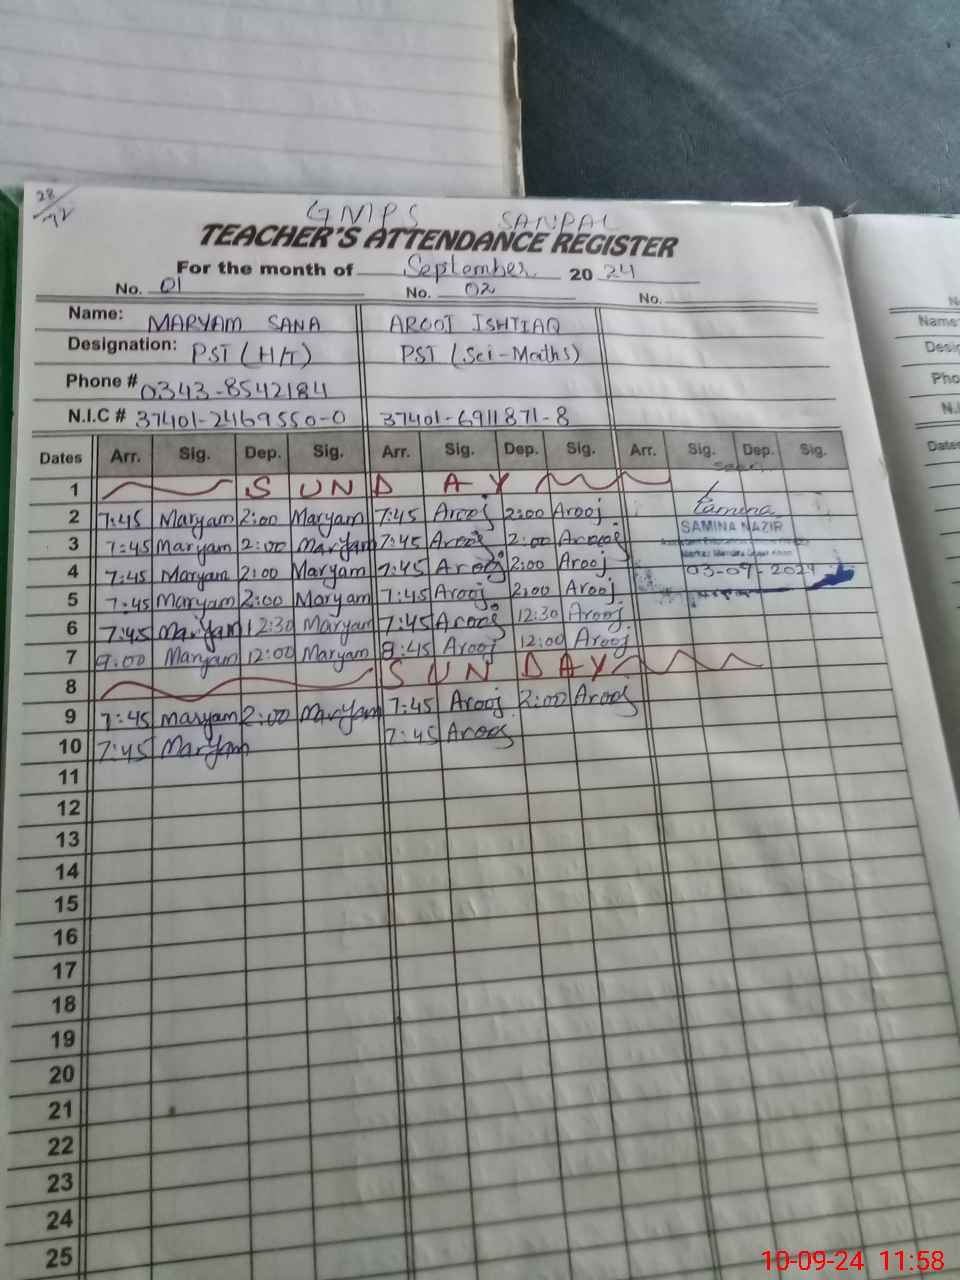 28/72
GMPS SANPAL
TEACHER'S ATTENDANCE REGISTER
For the month of September 2024
No. 01 No. 02 No.
Name: MARYAM SANA AROOJ ISHTIAQ
Designation: PST (H/T) PST (Sci-Maths)
Phone # 0343-8542184
N.I.C # 37401-2469550-0 37401-6911871-8
Dates Arr. Sig. Dep. Sig. Arr. Sig. Dep. Sig. Arr. Sig. Dep. Sig.
1 SUNDAY
2 7:45 Maryam 2:00 Maryam 7:45 Arooj 2:00 Arooj
SAMINA NAZIR
3 7:45 Maryam 2:00 Maryam 7:45 Arooj 2:00 Arooj
4 7:45 Maryam 2:00 Maryam 7:45 Arooj 2:00 Arooj 03-09-2024
5 7:45 Maryam 2:00 Maryam 7:45 Arooj 2:00 Arooj
6 7:45 Maryam 12:30 Maryam 7:45 Arooj 12:30 Arooj
7 9:00 Maryam 12:00 Maryam 8:45 Arooj 12:00 Arooj
8 SUNDAY
9 7:45 Maryam 2:00 Maryam 7:45 Arooj 2:00 Arooj
10 7:45 Maryam 7:45 Arooj
11
12
13
14
15
16
17
18
19
20
21
22
23
24
25
Name
Desig
Pho
N.I
Dates
10-09-24 11:58